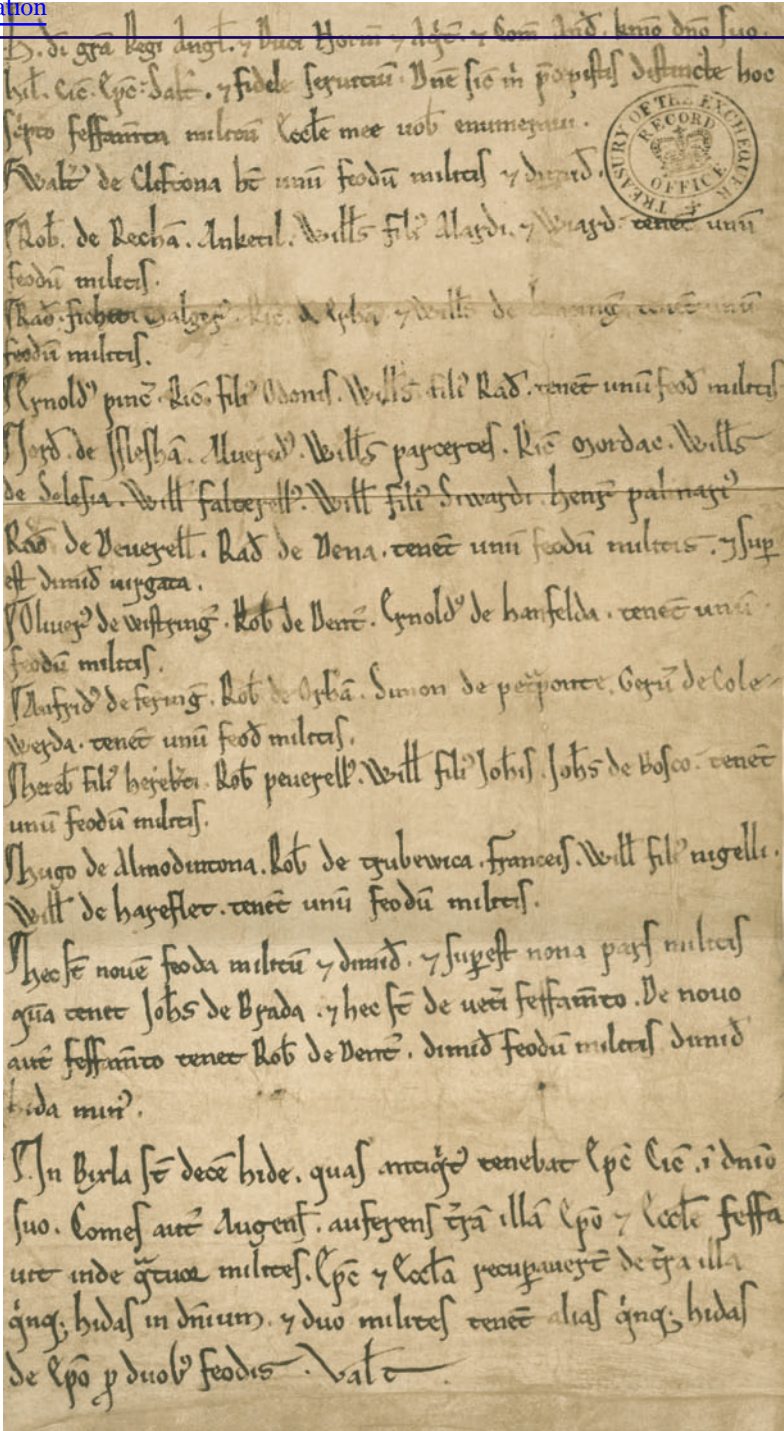 ation
H. di gr̃a Regi Angl. ⁊ Duci Norm̃ ⁊ Aq̃t. ⁊ Com̃ And̃. k̃mo dño suo.
hil. Cic̄. Ep̄c̄. Sal̃t. ⁊ fidele seruitiũ. Dñe sic̃ m̃ p̃cepistis distincte hoc
sc̃pto feffam̃ta militũ Eccl̃e mee uob̃ enumeraui.
TREASURY OF THE EXCHEQUER
RECORD OFFICE
Walt̃ de Cliftona ht̃ unũ feodũ militis ⁊ dimid̃.
Rob̃. de Rechã. Anketil. Will̃s fili᾽ Alardi. ⁊ Wiard. tenẽt unũ
feodũ militis.
Rad̃. Ric̃. de ⁊ Will̃s de tenẽt unũ
feodũ militis.
Ernold᾽ pinc̃. Ric̃. fili᾽ Odonis. Will̃s fili᾽ Rad̃. tenẽt unũ feod̃ militis.
de Isleshã. Alured᾽. Will̃s parcertes. Ric̃ Mordac. Will̃s
de Selesia. Will̃ falterell᾽. Will̃ fili᾽ Siwardi. henr̃ palmari᾽
Rad̃ de Deuerell̃. Rad̃ de Dena. tenẽt unũ feodũ militis. ⁊ sup̃
est dimid̃ uirgata.
Oliuer᾽ de Wistring̃. Rob̃ de Dent̃. Ernold᾽ de hanfelda. tenẽt unũ
feodũ militis.
Anfrid᾽ de fering̃. Rob̃ de Orhã. Simon de pet̃ponte. Gerũ de Cole-
werda. tenẽt unũ feod̃ militis.
hereb̃ fili᾽ hereb̃ti. Rob̃ peuerell᾽. Will̃ fili᾽ Joh̃is. Joh̃s de Bosco. tenẽt
unũ feodũ militis.
hugo de Almodintona. Rob̃ de trubewica. Franceis. Will̃ fili᾽ nigelli.
Will̃ de hareflet. tenẽt unũ feodũ militis.
hec st̃ nouẽ feoda militũ ⁊ dimid̃. ⁊ sup̃est nona pars militis
quã tenet Joh̃s de Brada. ⁊ hec st̃ de uet̃i feffam̃to. De nouo
aut̃ feffam̃to tenet Rob̃ de Dent̃. dimid̃ feodũ militis dimid̃
hida min᾽.
In Byrla st̃ decẽ hide. quas antiq̃t᾽ tenebat Ep̃c Cic̃. ĩ dñio
suo. Comes aut̃ Augens̃. auferens t̃rã illã Ep̃o ⁊ Eccl̃e feffa
uit inde q̃tuor milites. Ep̃c ⁊ Eccl̃a recup̃auert̃ de t̃ra illa
q̃nq; hidas in dñium. ⁊ duo milites tenẽt alias q̃nq; hidas
de Ep̃o p̱ duob᾽ feodis. Val̃t